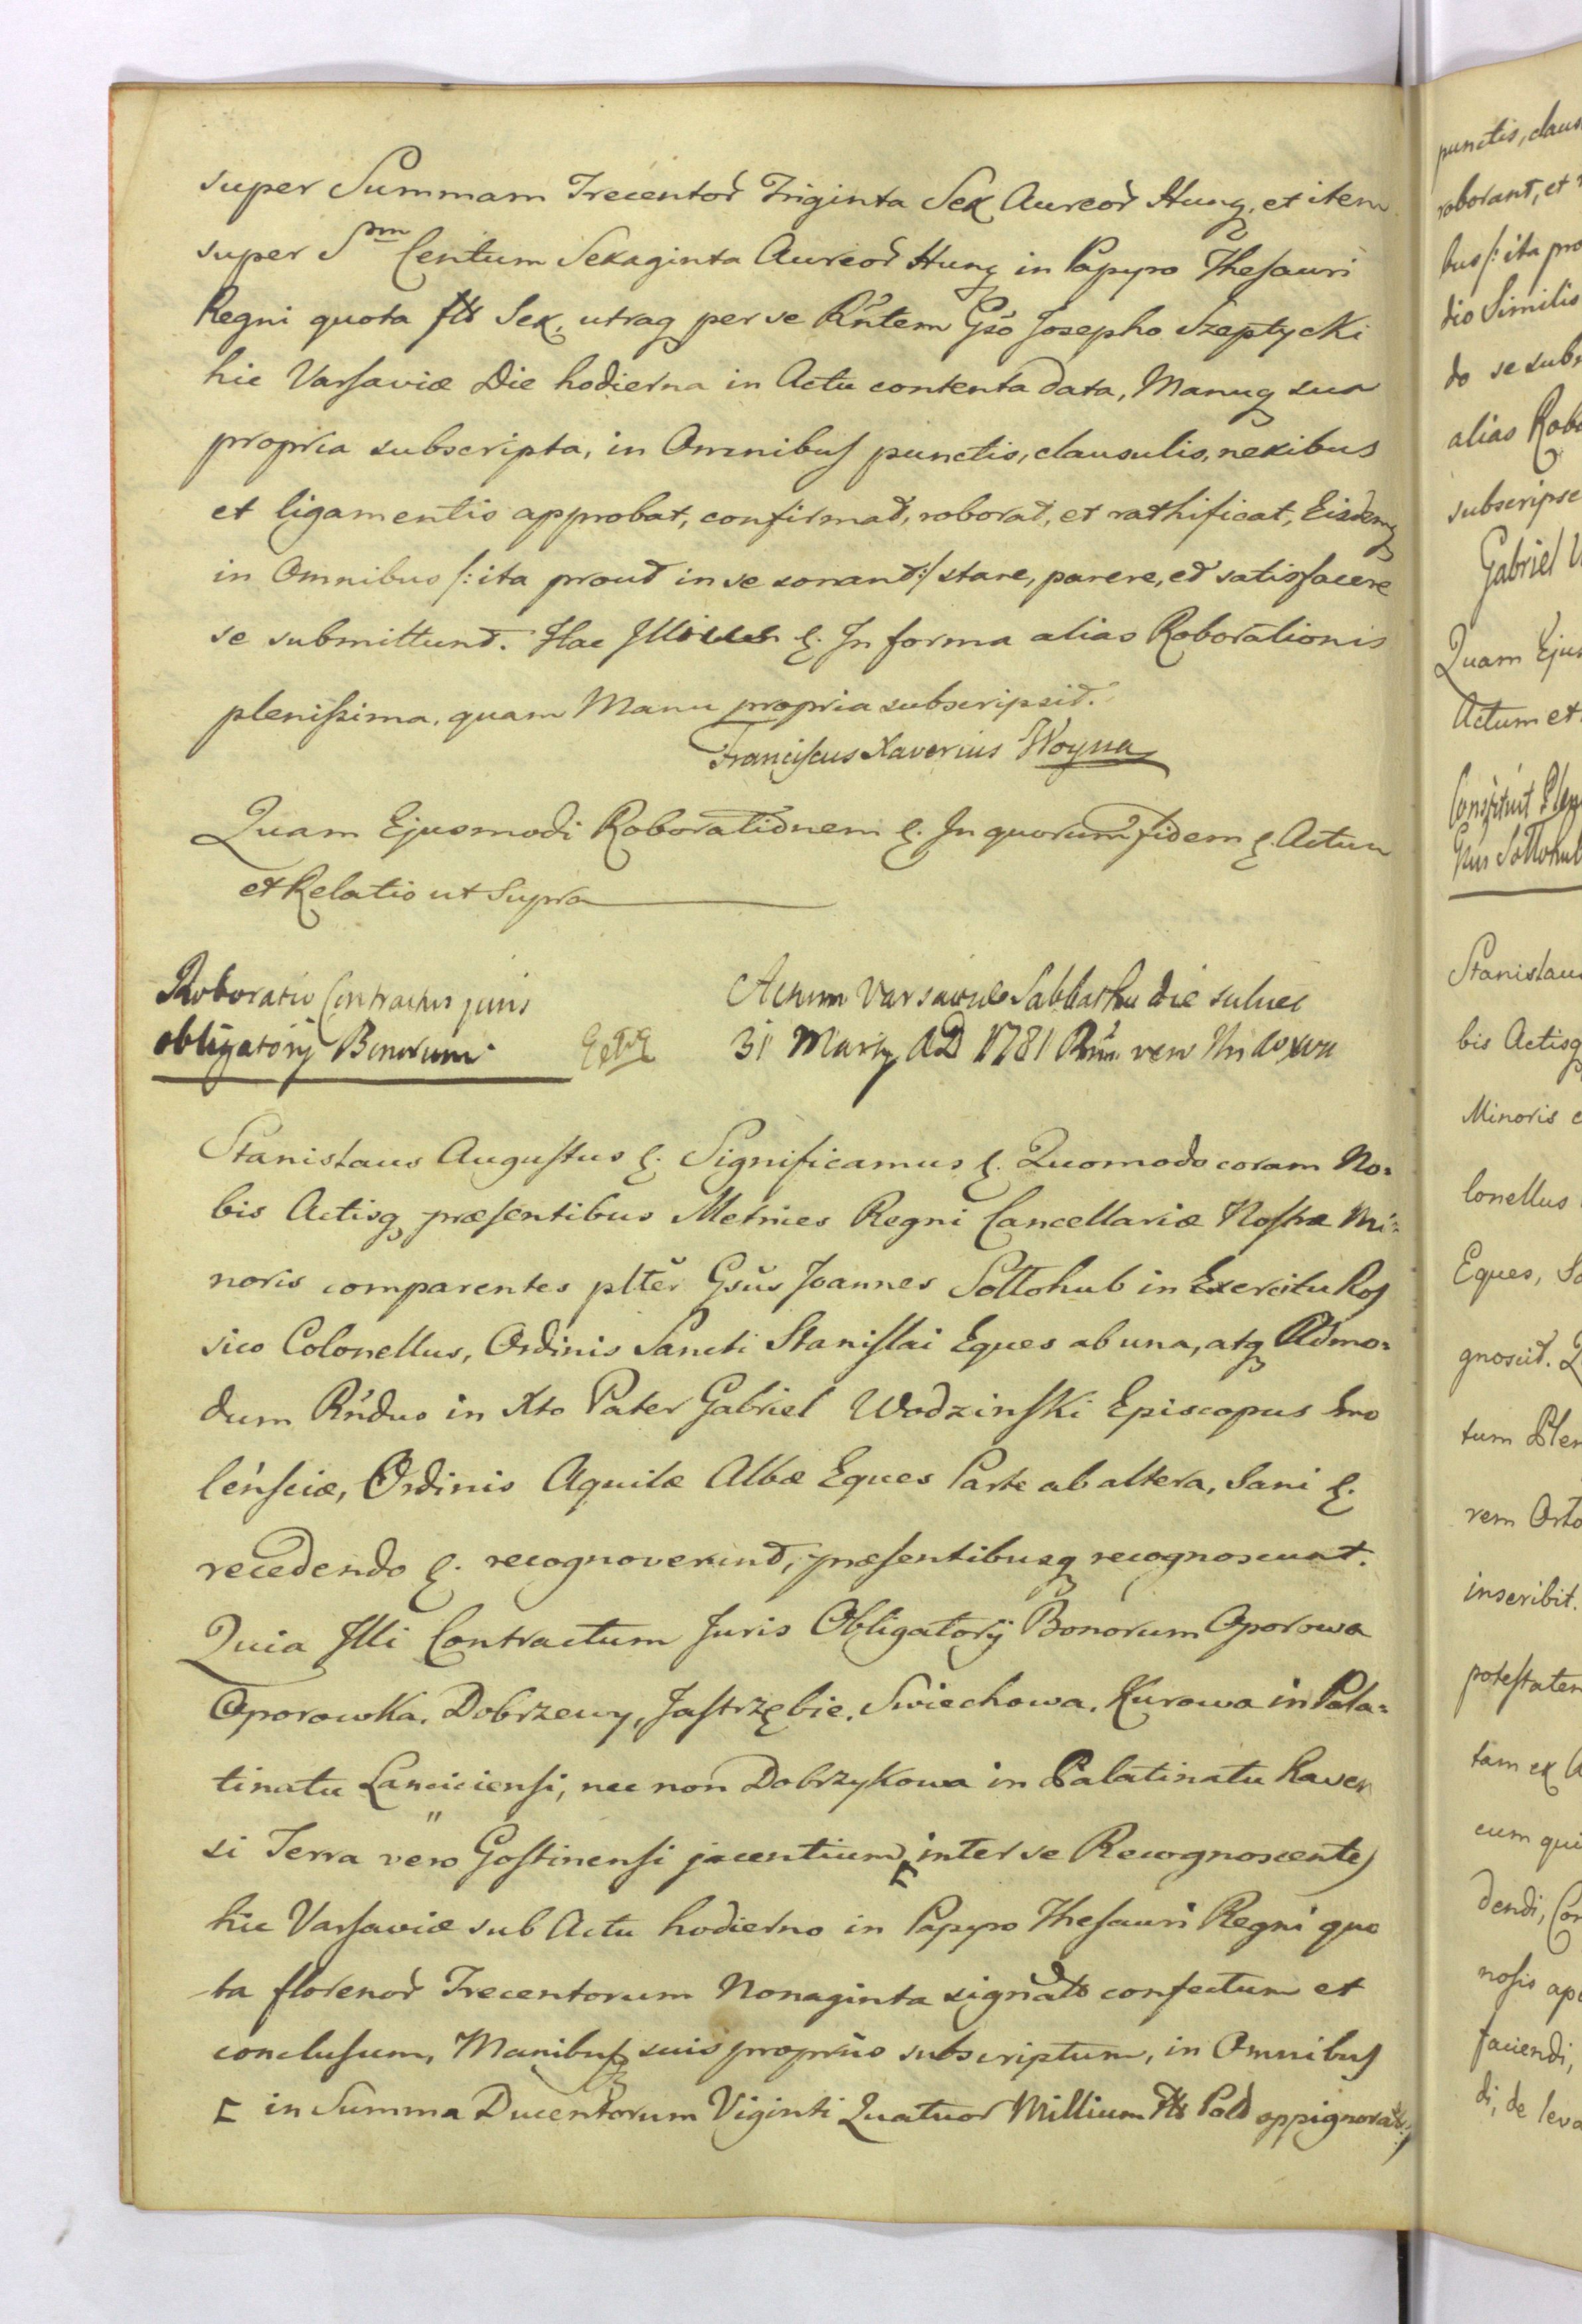 super Summam Trecentor Triginta Sex Aureor Hung, et item
super Sm̄ Centum Sexaginta Aureor Hung in Papyro Thesauri
Regni quota fls Sex, utraq per se Rñtem Gso Josepho Szeptycki
hic Varsaviæ Die hodierna in Actu contenta data, Manuq sua
propria subscripta, in Omnibus punctis, clausulis, nexibus
et ligamentis approbat, confirmat, roborat, et rathificat, Eisdemq
in Omnibus /: ita prout in se sonant :/ stare, parere, et satisfacere
se submittunt. Hac &. In forma alias Roborationis
plenissima, quam Manu propria subscripsit.
Franciscus Xaverius Woyna
Quam Ejusmodi Roborationem &. In quorum fidem &. Actum
et Relatio ut Supra
Roboratio Contractus juris
obligatorij Bonorum
Actum Varsaviæ Sabbatho die
31 Martij AD 1781
Stanislaus Augustus &. Significamus &. Quomodo coram No=
bis Actisq præsentibus Metrices Regni Cancellariæ Nostræ Mi=
noris comparentes pltēr Gsūs Joannes Sollohub in Exercitu Ros
sico Colonellus, Ordinis Sancti Stanislai Eques ab una, atq Admo=
dum Rńdus in Xto Pater Gabriel Wodzinski Episcopus Smo
leńsciæ, Ordinis Aquilæ Albæ Eques Parte ab altera, Sani &.
recedendo &. recognoverunt, præsentibusq recognoscunt.
Quia Illi Contractum Juris Obligatorij Bonorum Oporowa
Oporowka, Dobrzewy, Jastrzębie, Swiechowa, Kurowa in Pala=
tinatu Lanciciensi, nec non Dobrzykowa in Palatinatu Raven
si Terra vero Gostinensi jacentium, ⌈ inter se Recognoscentes
hic Varsaviæ sub Actu hodierno in Papyro Thesauri Regni quo
ta florenor Trecentorum Nonaginta signato confectum et
conclusum, Manibusq suis proprijs subscriptum, in Omnibus
⌈ in Summa Ducentorum Viginti Quatuor Millium fls Pold oppignorat.
punctis, claus
roborant, et
bus /: ita pro
dio Similis
do se subm
alias Robo
subscripse
Gabriel W
Quam Ejus
Actum et
Constituit Plen
Gsus Sollohub
Stanislaus
bis Actisq
Minoris c
lonellus
Eques, Sa
gnoscit. Q
tum Plen
rem Orto
inscribit.
potestatem
tam ex A
cum qui
dendi, Con
nosis ap
faciendi,
di, de leva